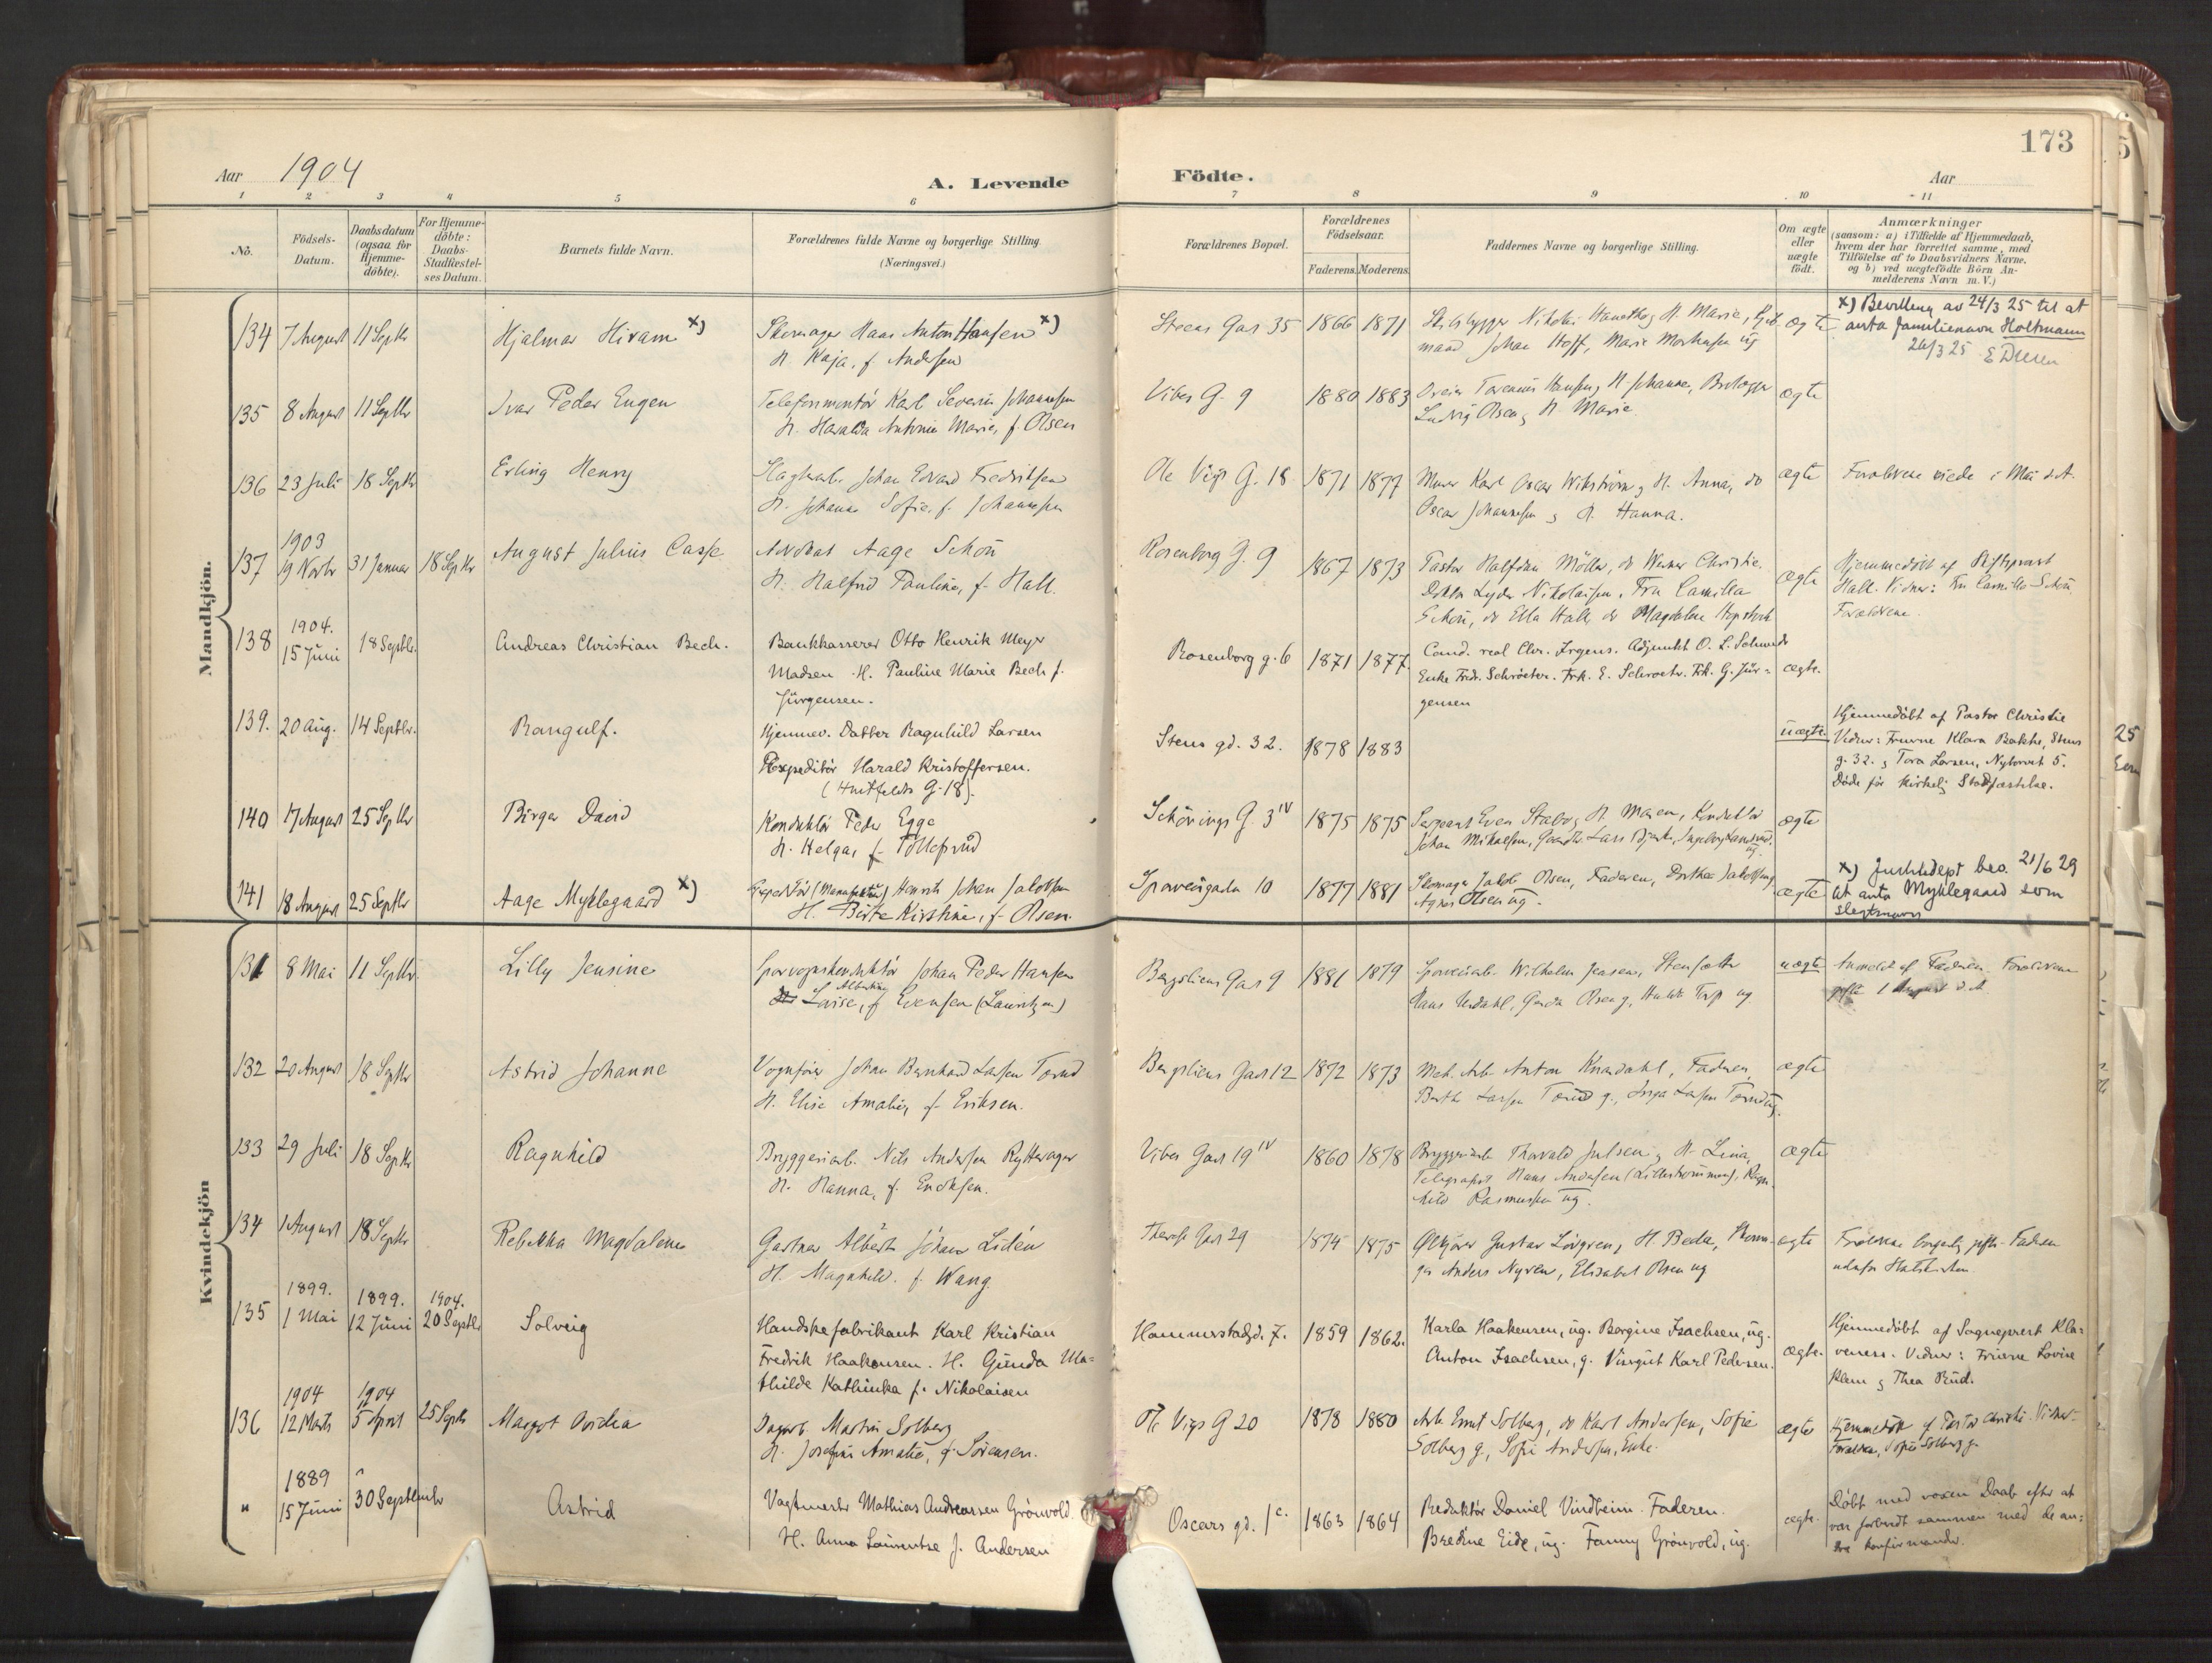 173
Aar 1904
A. Levende Fødte.
Aar
1 2 3 4 5 6 7 8 9 10 11
No.
Fødsels-Datum.
Daabsdatum (ogsaa for Hjemme-døbte).
For Hjemme-døbte: Daabs-Stadfæstel-ses Datum.
Barnets fulde Navn.
Forældrenes fulde Navne og borgerlige Stilling.
(Næringsvei.)
Forældrenes Bopæl.
Forældrenes Fødselsaar.
Faderens. Moderens.
Faddernes Navne og borgerlige Stilling.
Om ægte eller uægte født.
Anmærkninger
(saasom: a) i Tilfælde af Hjemmedaab,
hvem der har forrettet samme, med
Tilføielse af to Daabsvidners Navne.
og b) ved uægtefødte Børn An-
melderens Navn m. V.)
Mandkjön.
134 7 August 11 Septbr Hjalmar Hiram x) Skomager Hans Anton Hansen x)
H. Kaja, f. Andersen
Steens Gad 35 1866 1871
Johan Hoff, Marie
ægte
x) Bevilling av 24/3 25 til at
anta familienavn Holtmann
26/3 25
135 8 August 11 Septbr Ivar Peder Eugen Telefonmontør Karl Severin Johannesen
H. Haralda Antonie Marie, f. Olsen
Vibes G. 9 1880 1883
Ludvig Olsen, H. Marie
ægte
136 23 Juli 18 Septbr Erling Henry Johan Edvard Fredriksen
H. Johanne Sofie, f. Johannesen
Ole Vigs G. 18 1871 1877 Murer Karl Oscar Wikström, H. Anna, do
Oscar Johannesen, H. Hanna.
ægte Forældrene viede i Mai d.A.
1903
137 19 Novbr 31 Januar 18 Septbr August Julius Casse Advokat Aage Schou
H. Halfrid Pauline, f. Hall.
Rosenborg G. 9 1867 1873 Pastor Halfdan Möller, do Werner Christie.
Doktor Lyder Nikolaisen, Fru Camilla
Schou, do Ella Hall, do Magdalene
ægte
Hjemmedøbt af Stiftsprovst
Hall. Vidner: Fru Camilla Schou
Forældrene.
1904.
138 15 Juni 18 Septbr. Andreas Christian Bech. Bankkasserer Otto Henrik Meyer
Madsen H. Pauline Marie Bech f.
Jürgensen.
Rosenborg g. 6 1871 1877. Cand. real Chr. Irgens. Adjunkt O. L. Schmidt
Enke Fredr. Schröeter. Frk. E. Schroeter. Frk. G. Jür-
gensen
ægte.
139. 20 Aug. 14 Septbr. Rangulf. Hjemmev. Datter Ragnhild Larsen
Expeditör Harald Kristoffersen.
(Huitfeldts G. 18).
Stens gd. 32. 1878 1883
uægte.
Hjemmedøbt af Pastor Christie
Vidner: Fruerne Klara Bakke, Stens
g. 32. & Tora Larsen, Nytorvet 5.
Døde før kirkelig Stadfæstelse.
140 17 August 25 Septbr Birger David Konduktör Peder Egge
H. Helga, f. Tollefsrud
Schönings G. 3 IV 1875 1875 Sergeant Even Stabo, H. Maren, Konduktör
Johan Mikaelsen,
ægte
141 18 August 25 Septbr Aage Myklegaard x) (Manufaktur) Johan Jakobsen
H. Birte Kirstine, f. Olsen.
Sporveisgaden 10 1877 1881 Skomager Jakob Olsen, Faderen, Dorthea Jakobsen,
Agnes Olsen ug.
ægte
x) Justitsdept bev. 21/6 29
at anta Myklegaard som
slegtsnavn
Kvindekjön
131 8 Mai 11 Septbr. Lilly Jensine Sporvognskonduktör Johan Peder Hansen
Albertine
Lovise, f. Evensen (Lauritzen)
Bergsliens Gad 9 1881 1879 Sporveisarb. Wilhelm Jensen,
uægte Anmeldt af Faderen. Forældrene
gifte 1 August d.A.
132 20 August 18 Septbr Astrid Johanne Vognfører Johan Bernhard Larsen Torud
H. Elise Amalie, f. Eriksen.
Bergsliens Gad 12 1872 1873 Mek. Arb. Anton Knardahl, Faderen,
Berthe Larsen Torud g., Inga Larsen Torud ug.
ægte
133 29 Juli 18 Septbr Ragnhild Bryggeriarb. Nils Andersen Rytterager
H. Hanna, f. Eriksen.
Vibes Gad 19 IV 1860 1878 Bryggeriarb. Thorvald Julsen, H. Lina,
Telegrafist Hans Andersen (Lillestrømmen), Ragn-
hild Rasmussen ug.
ægte
134 1 August 18 Septbr Rebekka Magdalene Gartner Albert Johan Lidén
H. Magnhild. f. Wang.
Therese Gad 29 1874 1875 Gustav Lövgren, H. Beda, Skoma-
ger Anders Nyren, Elisabet Olsen ug
ægte
Forældrene borgerlig gifte. Faderen
udenfor Statskirken.
1899. 1899. 1904.
135 1 Mai 12 Juni 20 Septbr Solveig Handskefabrikant Karl Kristian
Fredrik Haakensen. H. Gunda Ma-
thilde Kathinka f. Nikolaisen
Hammerstadgd. 7. 1859 1862. Karla Haakensen, ug. Borgine Isachsen, ug.
Anton Isachsen, g. Visergut Karl Pedersen.
ægte.
Hjemmedøbt af Sogneprest Kla-
veness. Vidner: Fruerne Lovise
Klem & Thea Rud.
1904 1904
136 12 Marts 5 April 25 Septbr Margot Ovidia Dagarb. Martin Solberg
H. Josefine Amalie, f. Sörensen.
Ole Vigs G 20 1878 1880 Arb. Ernst Solberg, do Karl Andersen, Sofie
Solberg g, Sofie Andersen, Enke.
ægte
Hjemmedøbt af Pastor Christie. Vidner:
Forældrene, Sofie Solberg g.
1889
" 15 Juni 30 September Astrid Vagtmester Mathias Andreassen Grönvold.
H. Anna Laurentse f. Andersen
Oscars gd. 1c. 1863 1864 Redaktör Daniel Vindheim. Faderen.
Bredine Eide, ug. Fanny Grönvold, ug.
ægte.
Døbt med voxen Daab efter at
var forberedt sammen med de an-
dre konfirmander.